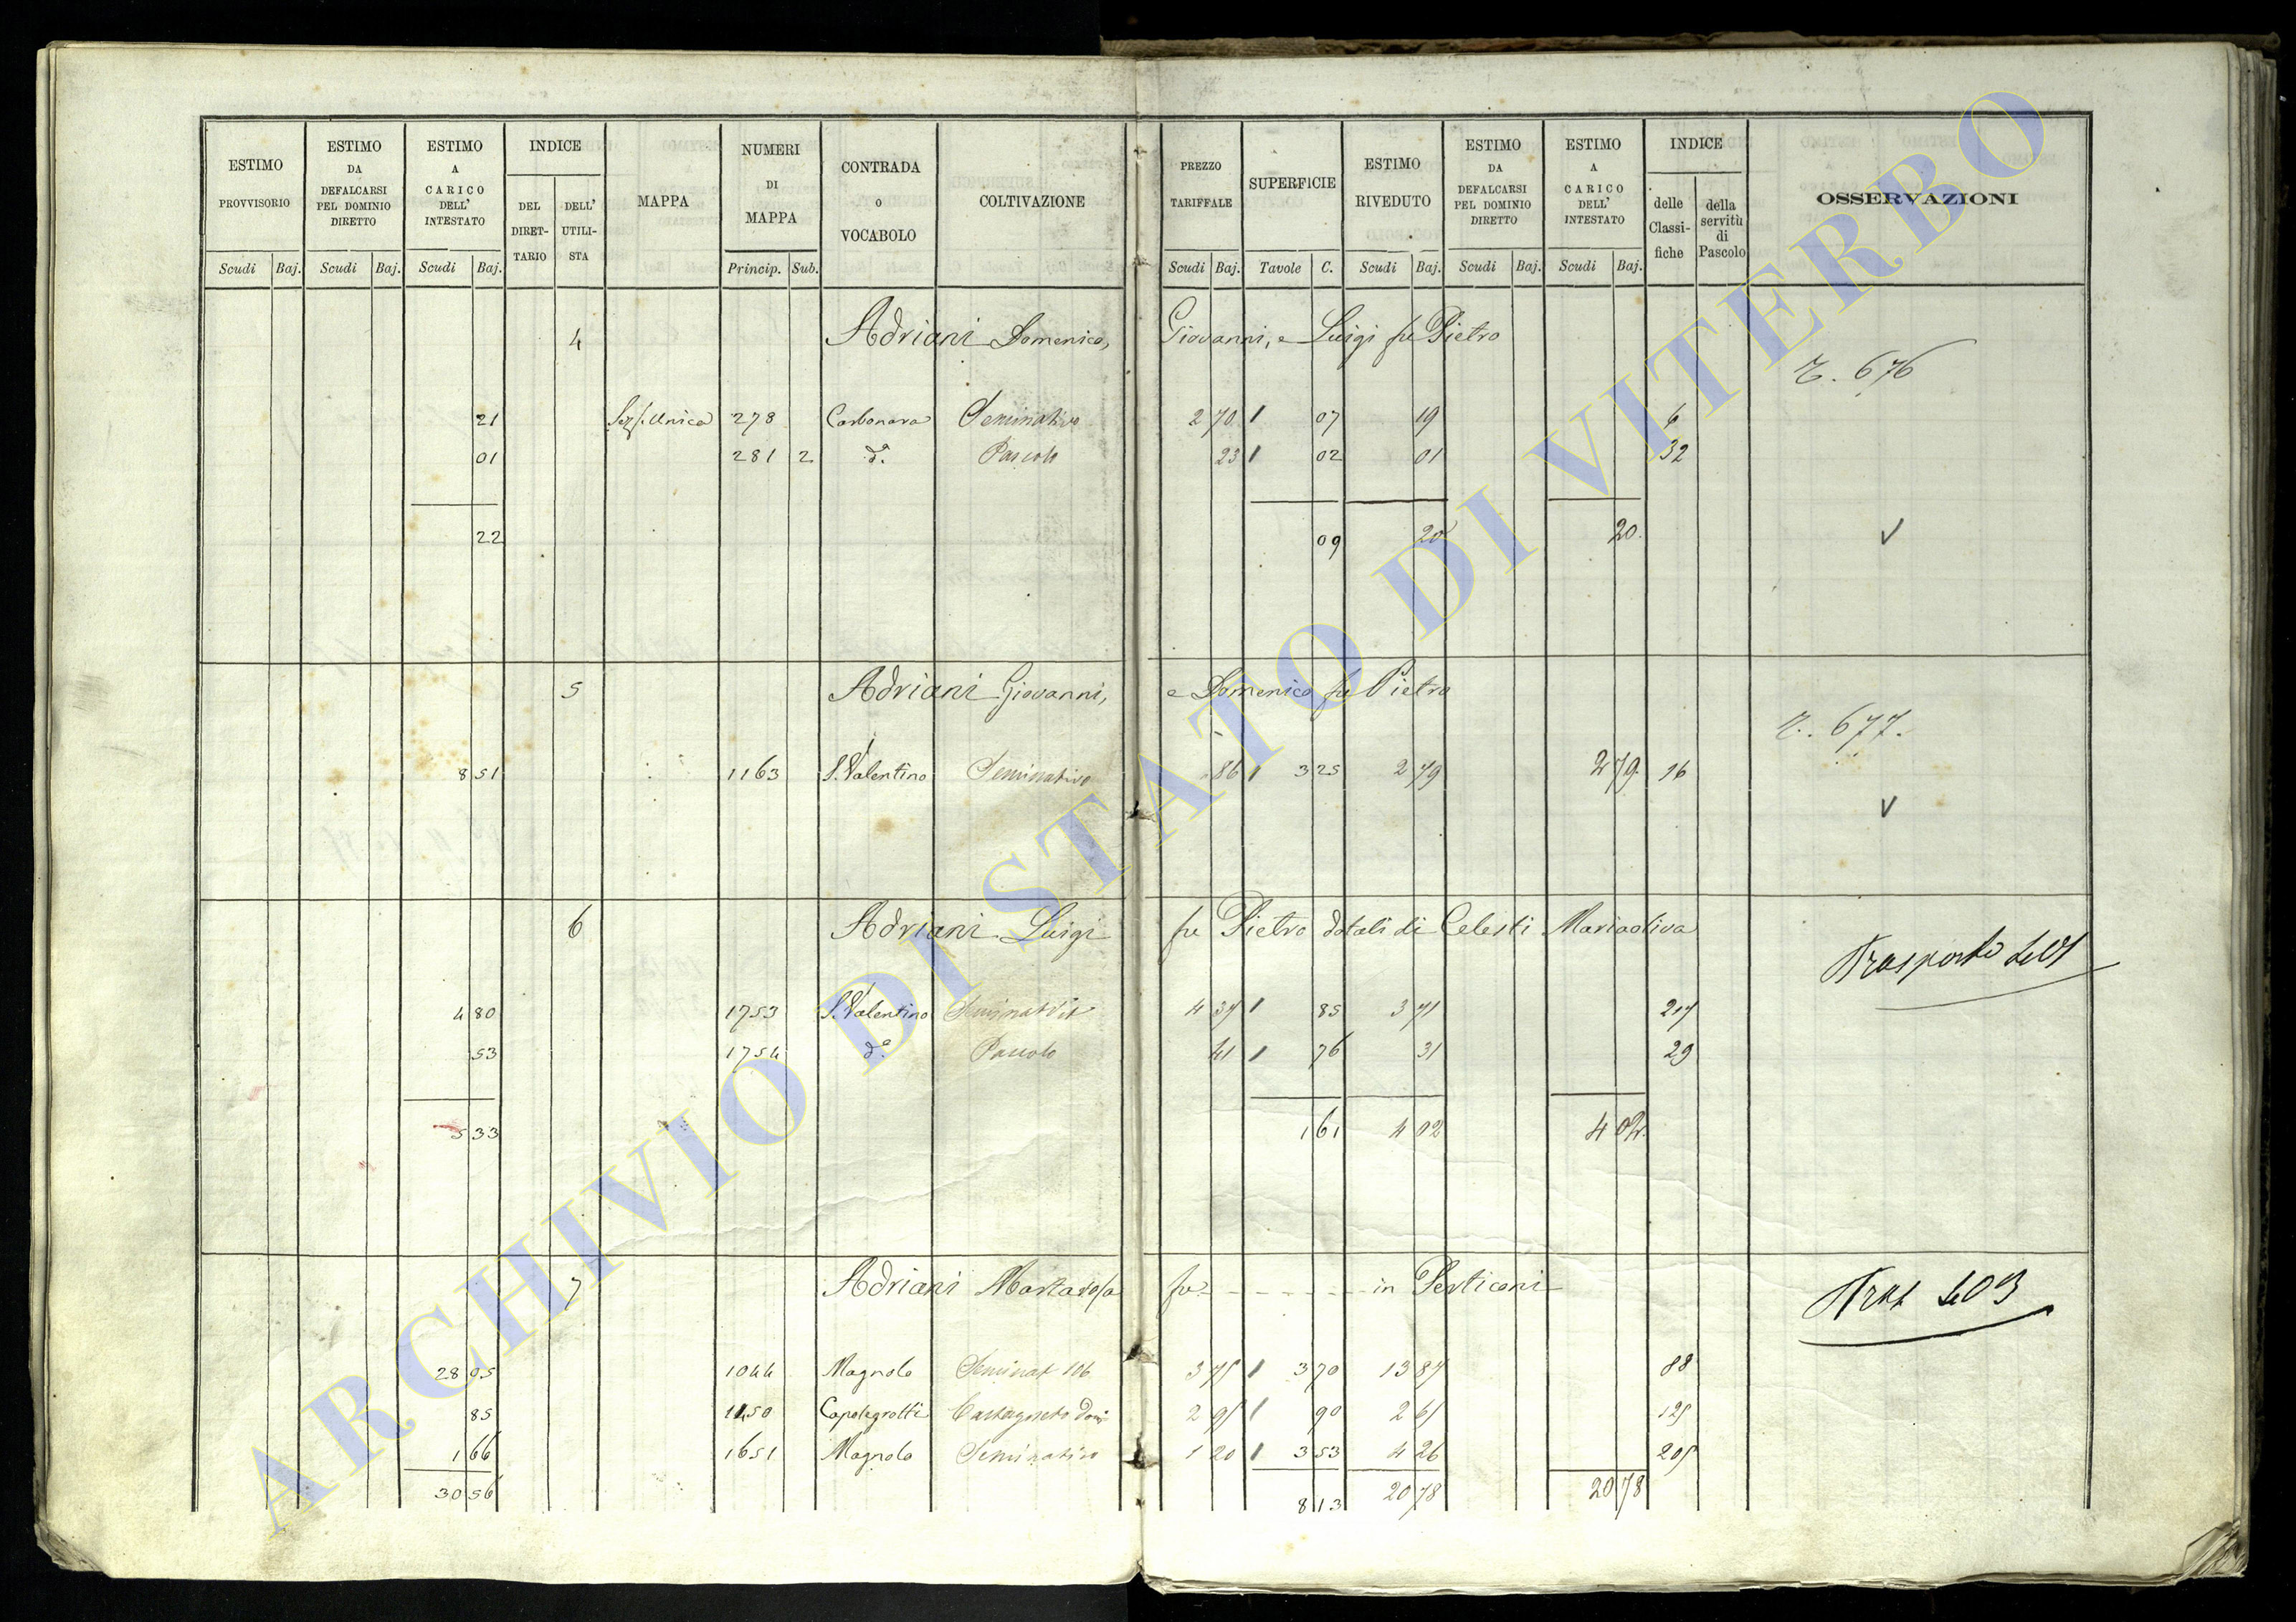 ESTIMO PROVVISORIO | ESTIMO DA DEFALCARSI PEL DOMINIO DIRETTO | ESTIMO A CARICO DELL' INTESTATO | INDICE | MAPPA | NUMERI DI MAPPA | CONTRADA O VOCABOLO | COLTIVAZIONE | PREZZO TARIFFALE | SUPERFICIE | ESTIMO RIVEDUTO | ESTIMO DA DEFALCARSI PEL DOMINIO DIRETTO | ESTIMO A CARICO DELL' INTESTATO | INDICE | OSSERVAZIONI
DEL DIRET-TARIO | DELL' UTILI-STA | delle Classi-fiche | della servitù di Pascolo
Scudi | Baj. | Scudi | Baj. | Scudi | Baj. | Princip. | Sub. | Scudi | Baj. | Tavole | C. | Scudi | Baj. | Scudi | Baj. | Scudi | Baj.
4 Adriani Domenico, Giovanni, e Luigi fu Pietro
r. 676
21 Sez. Unica 278 Carbonara Seminativo 2 70 1 07 19 6
01 281 2 d.a Pascolo 23 1 02 01 32
22 09 20 20.
5 Adriani Giovanni, e Domenico fu Pietro
r. 677.
8 51 1163 S. Valentino Seminativo 86 1 3 25 2 79 2 79 16
6 Adriani Luigi fu Pietro dotali di Celesti Mariaoliva
Trasporto
4 80 1753 S. Valentino 4 37 1 85 3 71 217
53 1754 d.a Pascolo 41 1 76 31 29
5 33 1 61 4 02 4 02.
7 Adriani Martarosa fu - - - - - - in Perticani
28 05 1044 Magnola 3 75 1 3 70 13 87 88
85 1450 Capolegrotti Castagneto 2 95 1 90 2 65 125
1 66 1651 Magnola Seminativo 1 20 1 3 53 4 26 205
30 56 8 13 20 78 20 78
ARCHIVIO DI STATO DI VITERBO